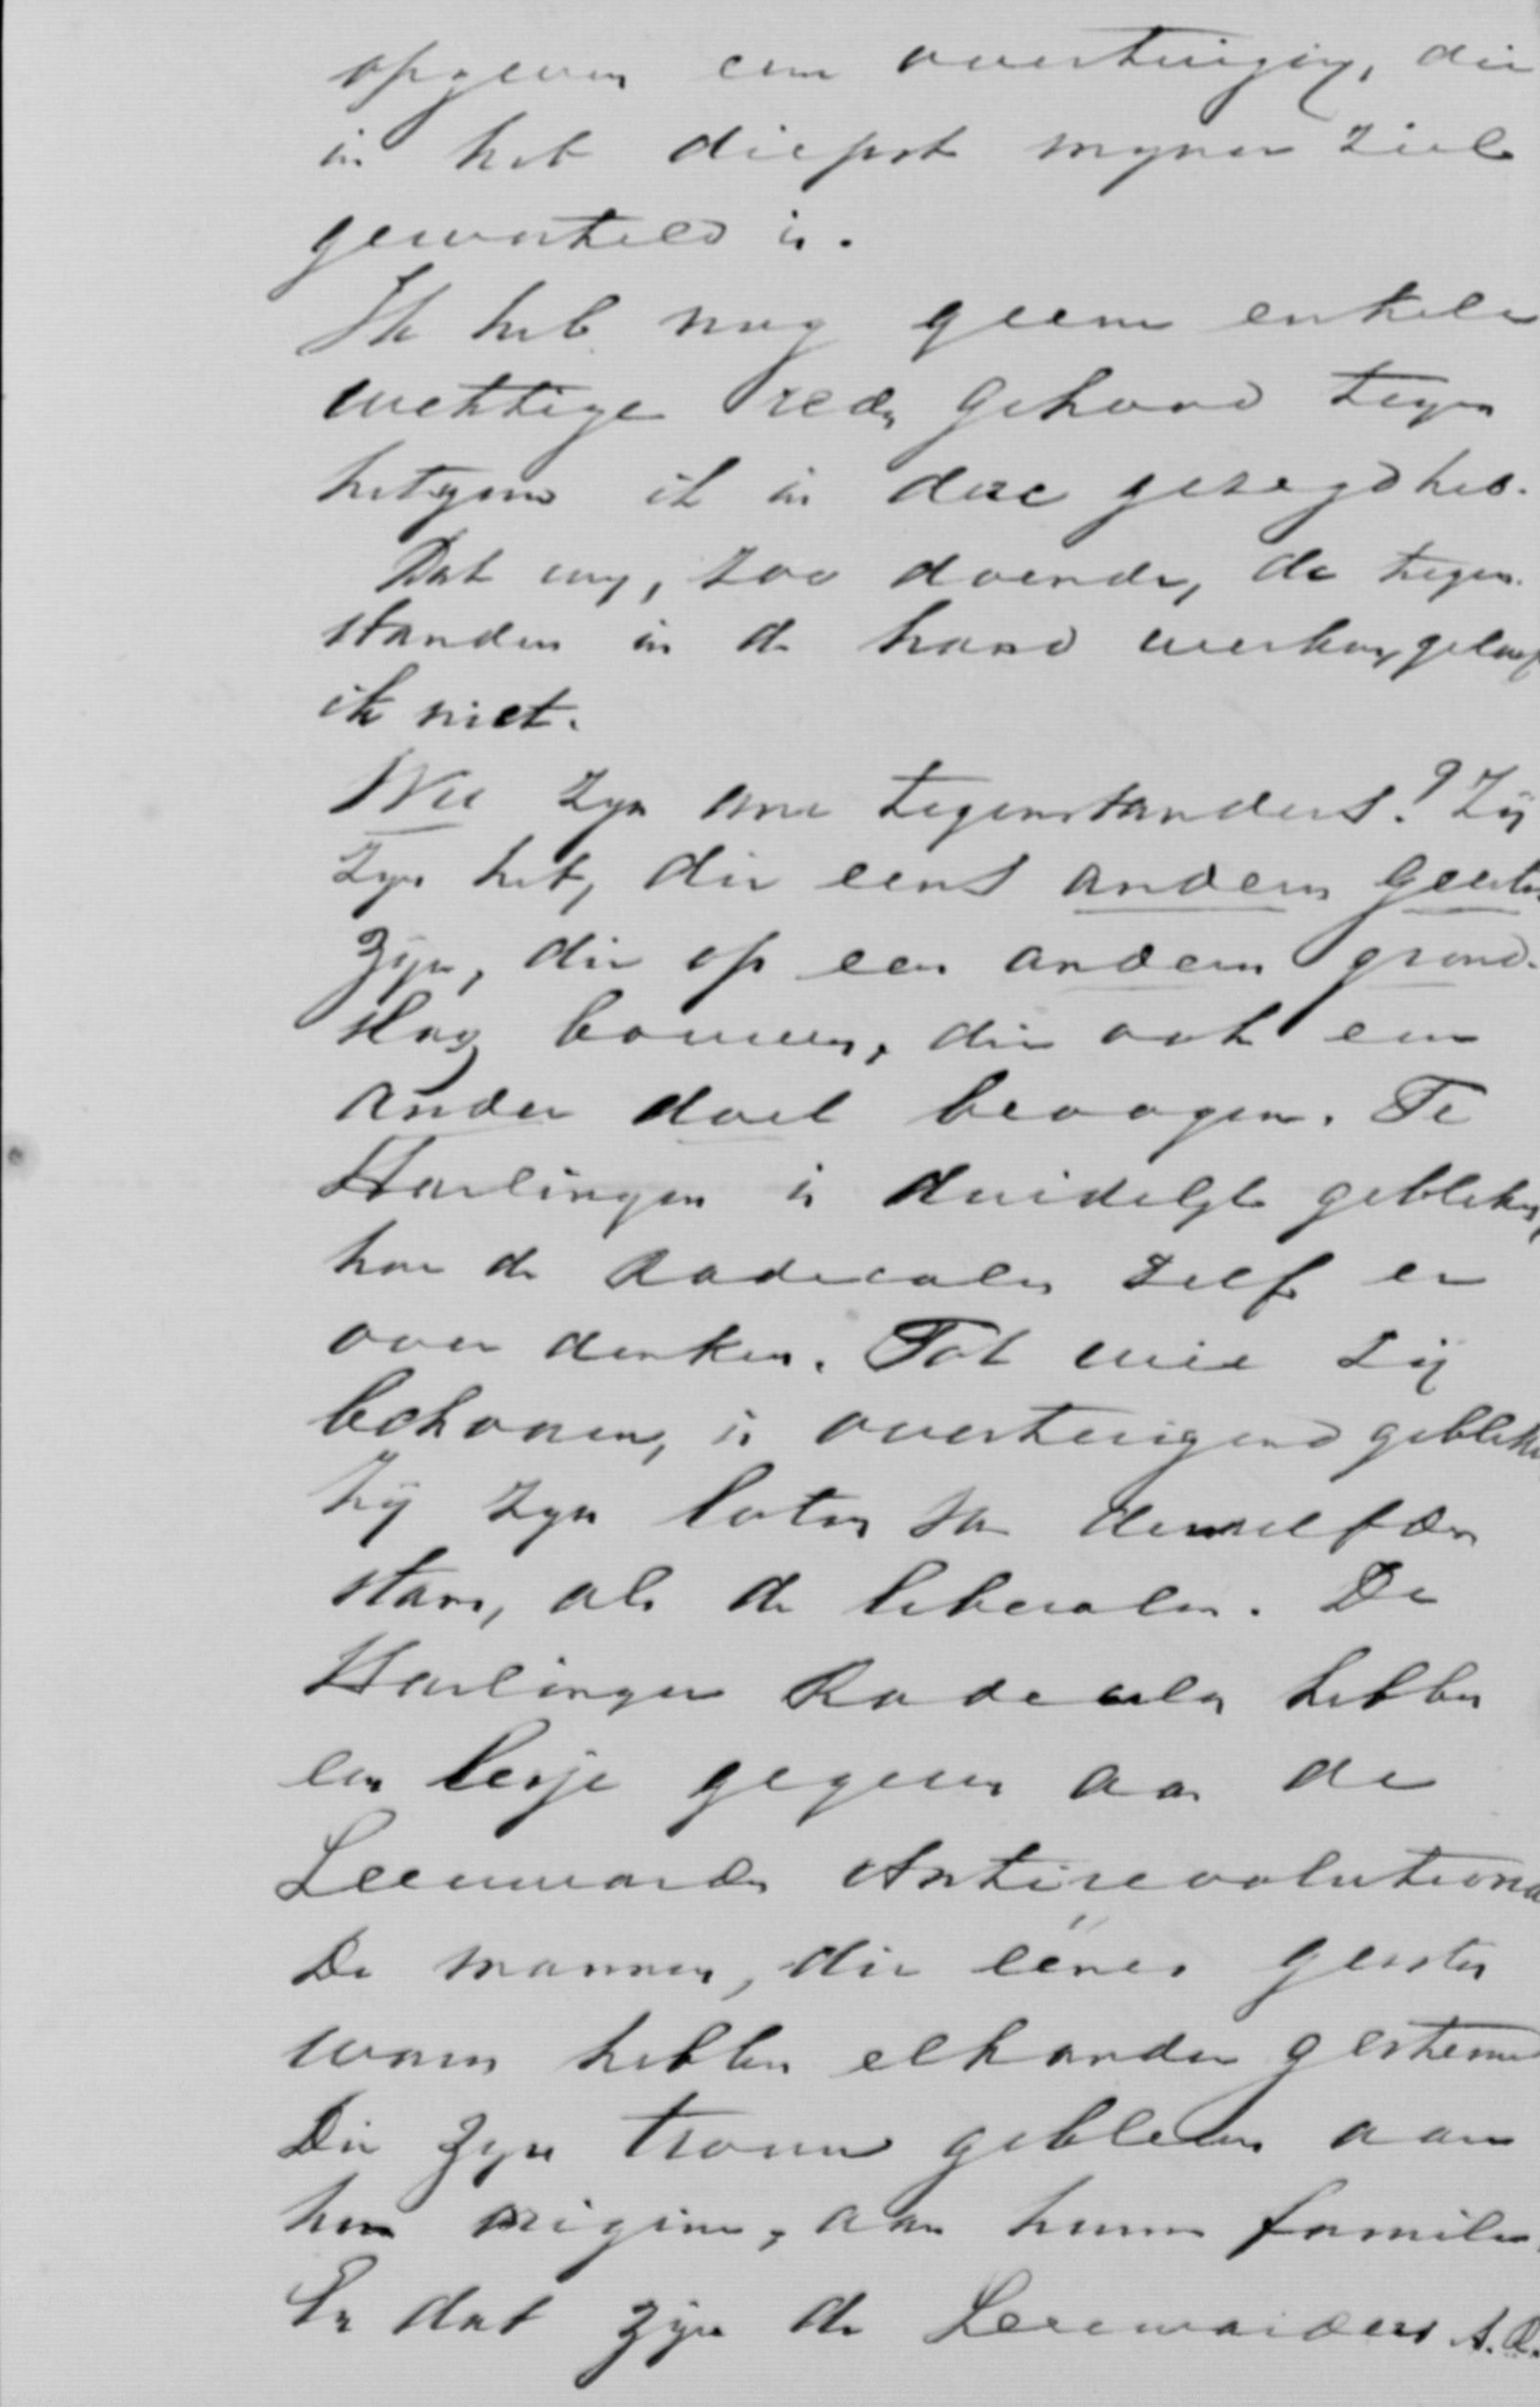 opgeven eene overtuiging, die
in het diepst mijner ziel
geworteld is.
Ik heb nog geene enkele
wettige reden gehoord tegen
hetgeen ik in deze gezegd heb.
Dat wy, zoo doende, de tegen-
standers in de hand werken, geloof
ik niet.
Wie zyn onze tegenstanders? Zij
zyn het, die eens anderen geestes
zijn, die op een anderen grond-
slag bouwen, die ook een
ander doel beoogen. Te
Harlingen is duidelyk gebleken,
hoe de Radicalen zelf er
over denken. Tot wie zij
behooren, is overtuigend gebleken
Zij zyn loten van denzelfden
stam, als de liberalen. De
Harlinger Radicalen hebben
een lesje gegeven aan de
Leeuwarder Antirevolutiona
De mannen, die éénes geestes
waren hebben elkander gestemd
Die zyn trouw gebleven aan
hun origine, aan hunne familie.
En dat zijn de Leeuwarders A.R.